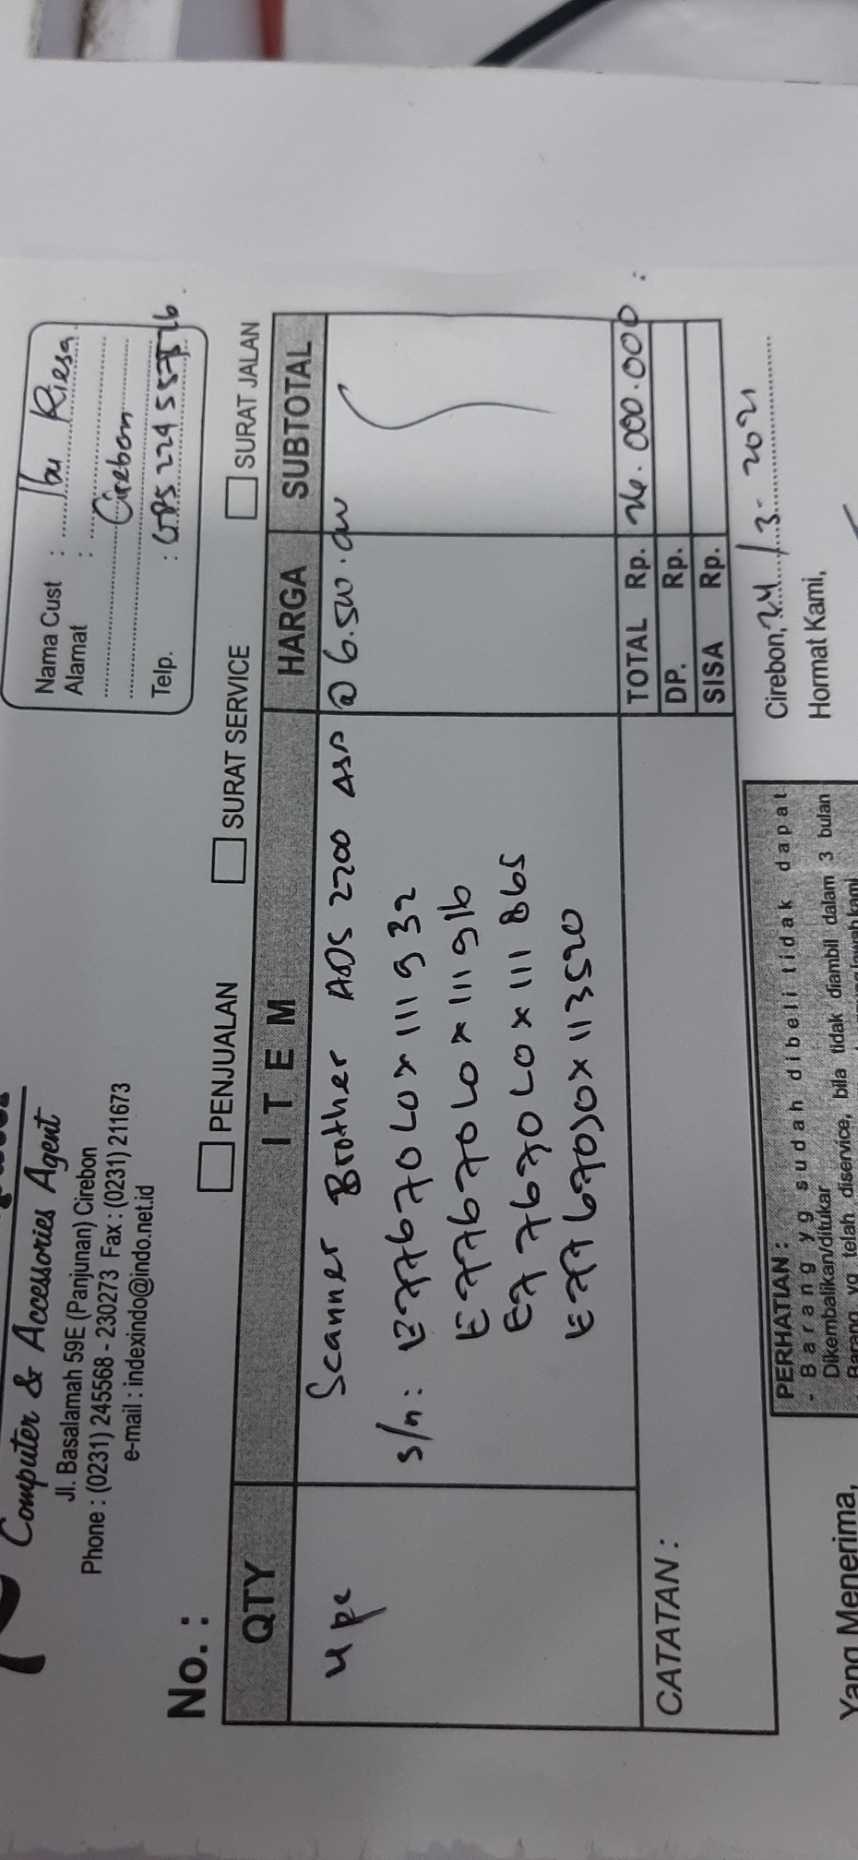 Computer & Accessories Agent
Jl. Basalamah 59E (Panjunan) Cirebon
Phone : (0231) 245568 - 230273 Fax : (0231) 211673
e-mail : indexindo@indo.net.id
Nama Cust : Ibu Riesa
Alamat :
Cirebon
Telp. :
No. :
PENJUALAN SURAT SERVICE SURAT JALAN
QTY ITEM HARGA SUBTOTAL
4 pc Scanner Brother ADS 2200 @ 6.500.000
s/n: E77670L0x111932
E77670L0x111916
E77670L0x111865
E77670J0x113520
TOTAL Rp. 26.000.000
DP. Rp.
SISA Rp.
CATATAN :
Cirebon, 24/3-2021
Hormat Kami,
PERHATIAN :
- Barang yg sudah dibeli tidak dapat
Dikembalikan/ditukar
Barang yg telah diservice, bila tidak diambil dalam 3 bulan
Yang Menerima,